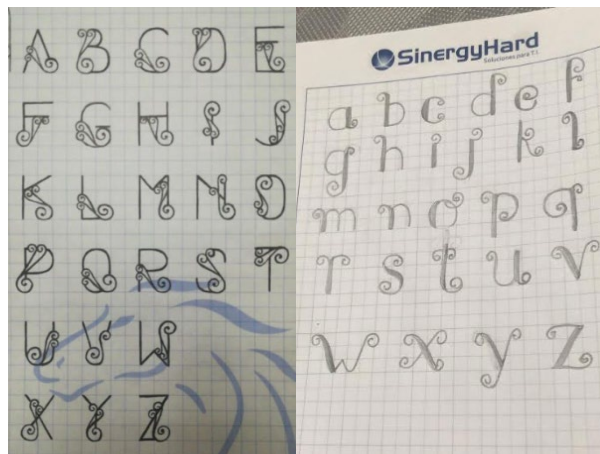 A B C D E
F G H I J
K L M N O
P Q R S T
U V W
X Y Z
SinergyHard
Soluciones para T.I.
a b c d e f
g h i j k l
m n o p q
r s t u v
w x y z